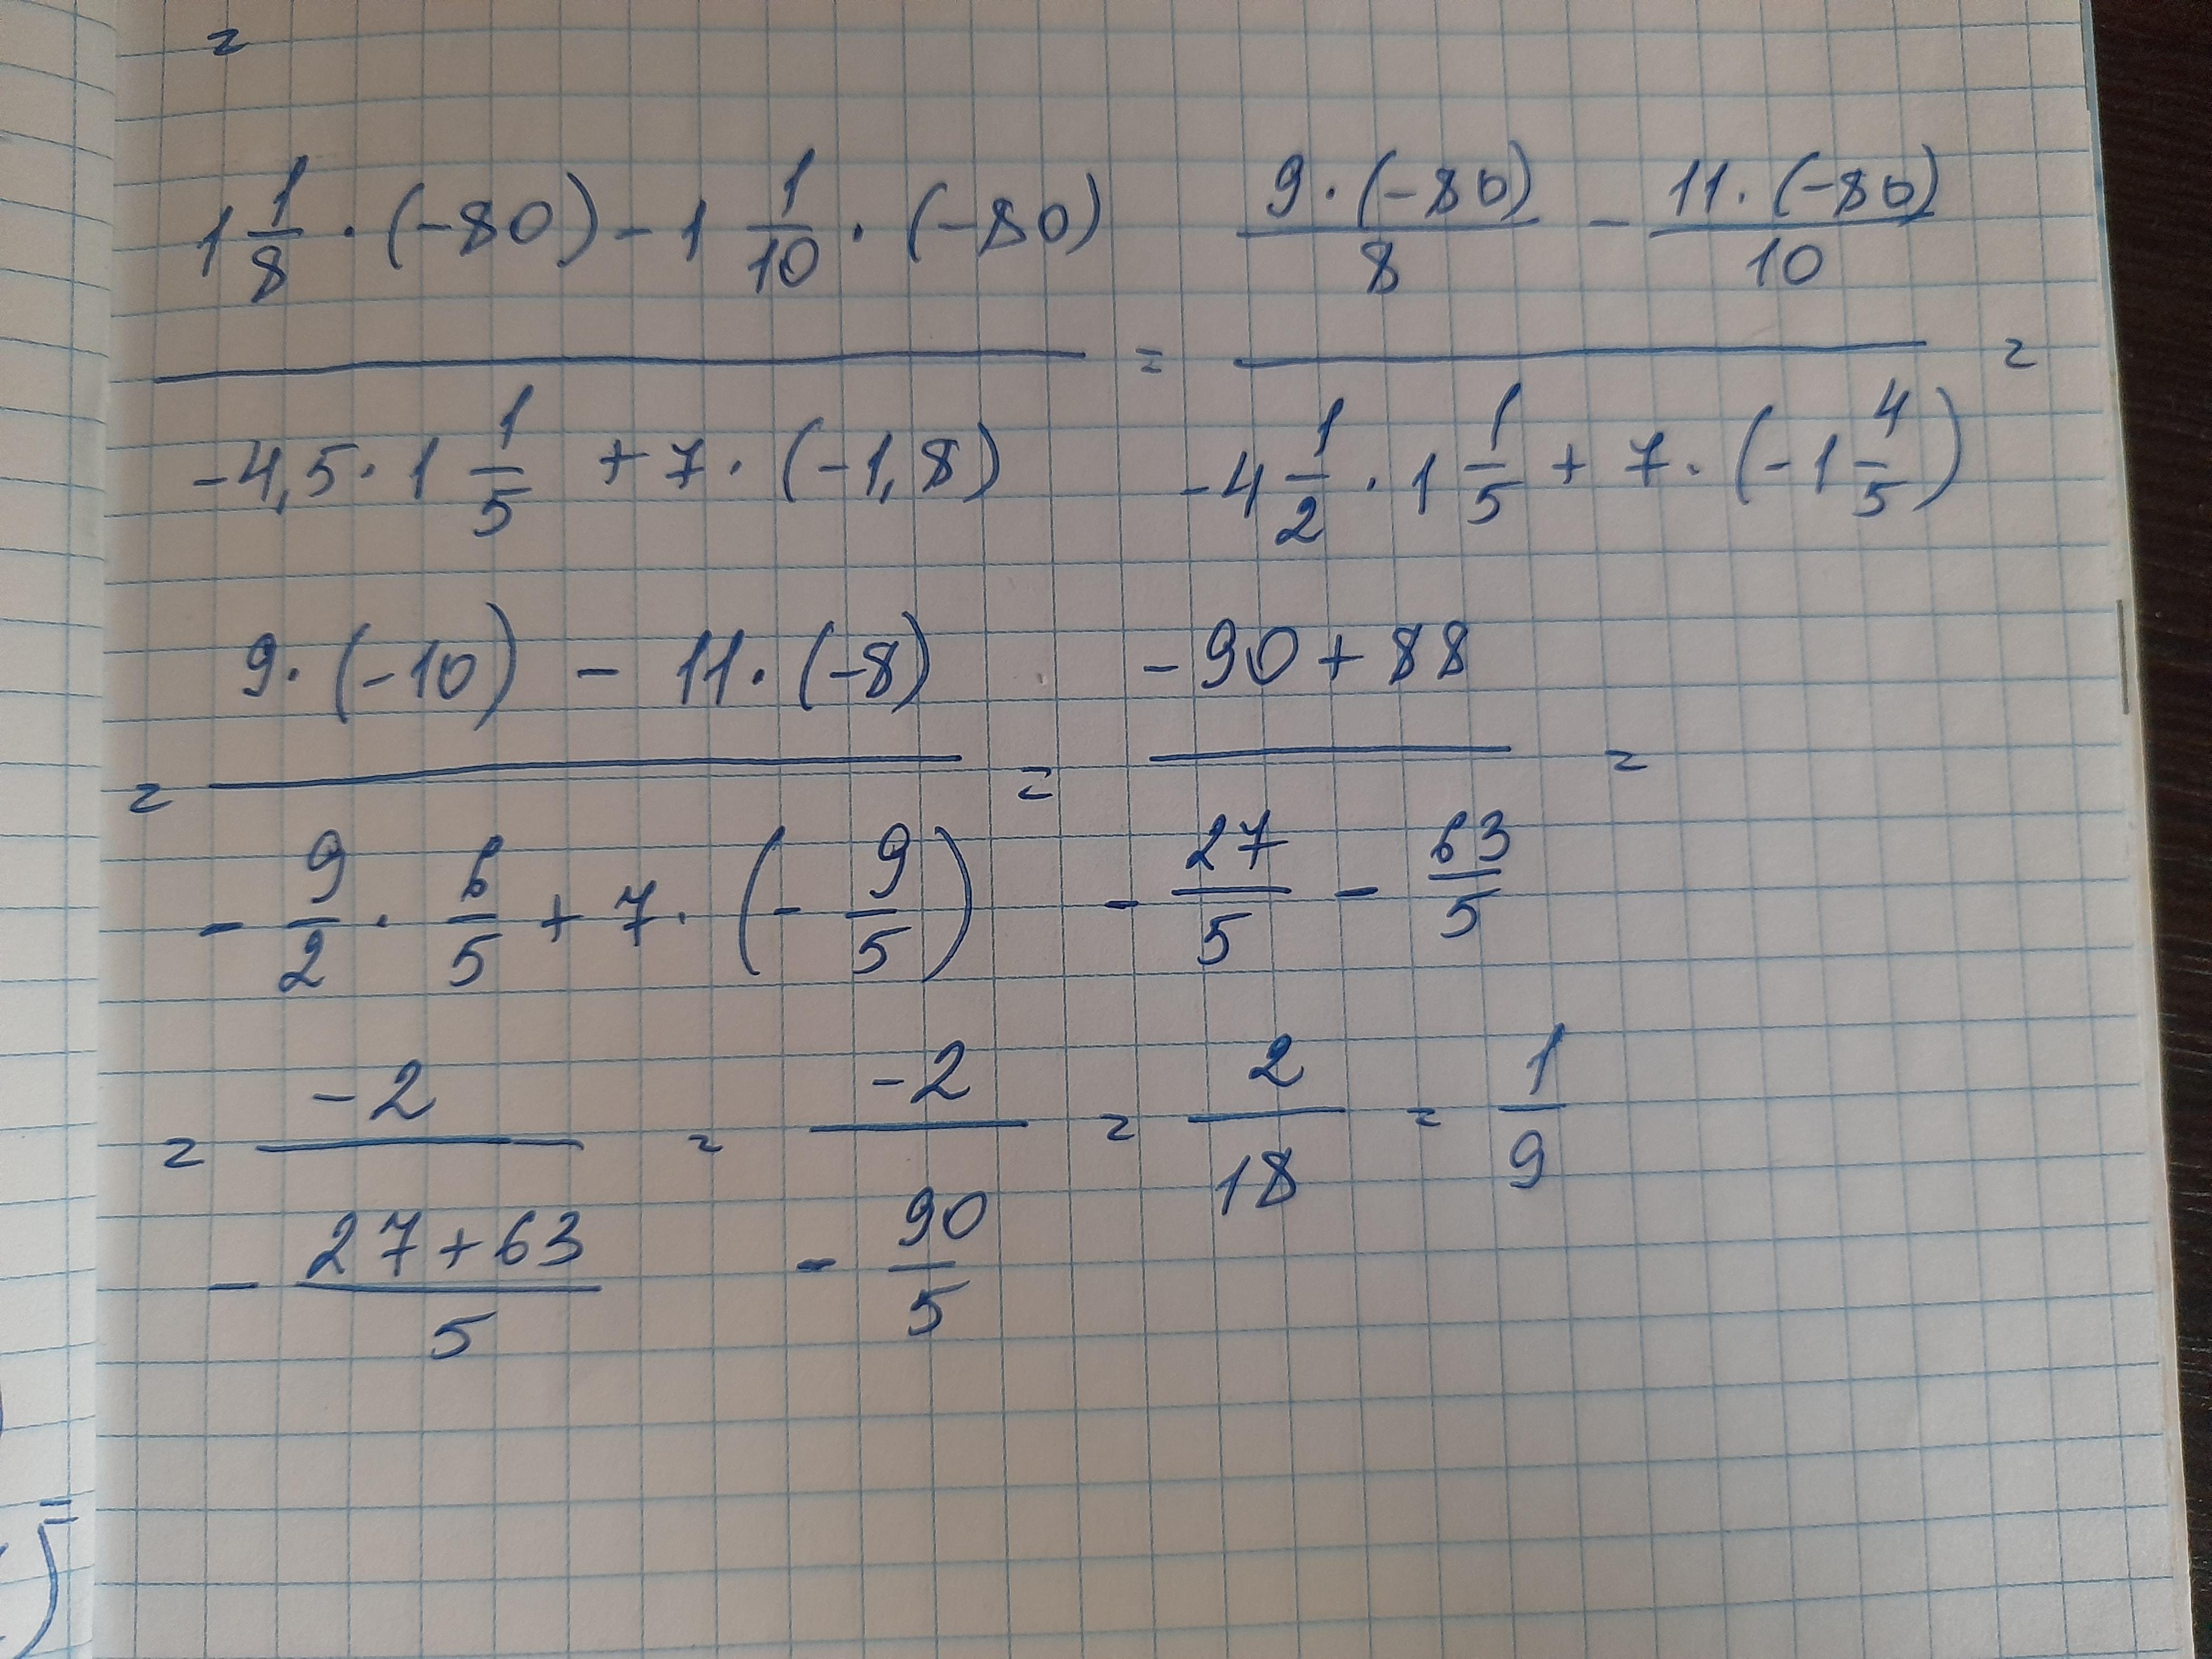 =
1 1/8 · (-80) - 1 1/10 · (-80) / -4,5 · 1 1/5 + 7 · (-1,8) = 9 · (-80)/8 - 11 · (-80)/10 / -4 1/2 · 1 1/5 + 7 · (-1 4/5) =
= 9 · (-10) - 11 · (-8) / - 9/2 · 6/5 + 7 · (- 9/5) = -90 + 88 / - 27/5 - 63/5 =
= -2 / - 27+63/5 = -2 / - 90/5 = 2/18 = 1/9